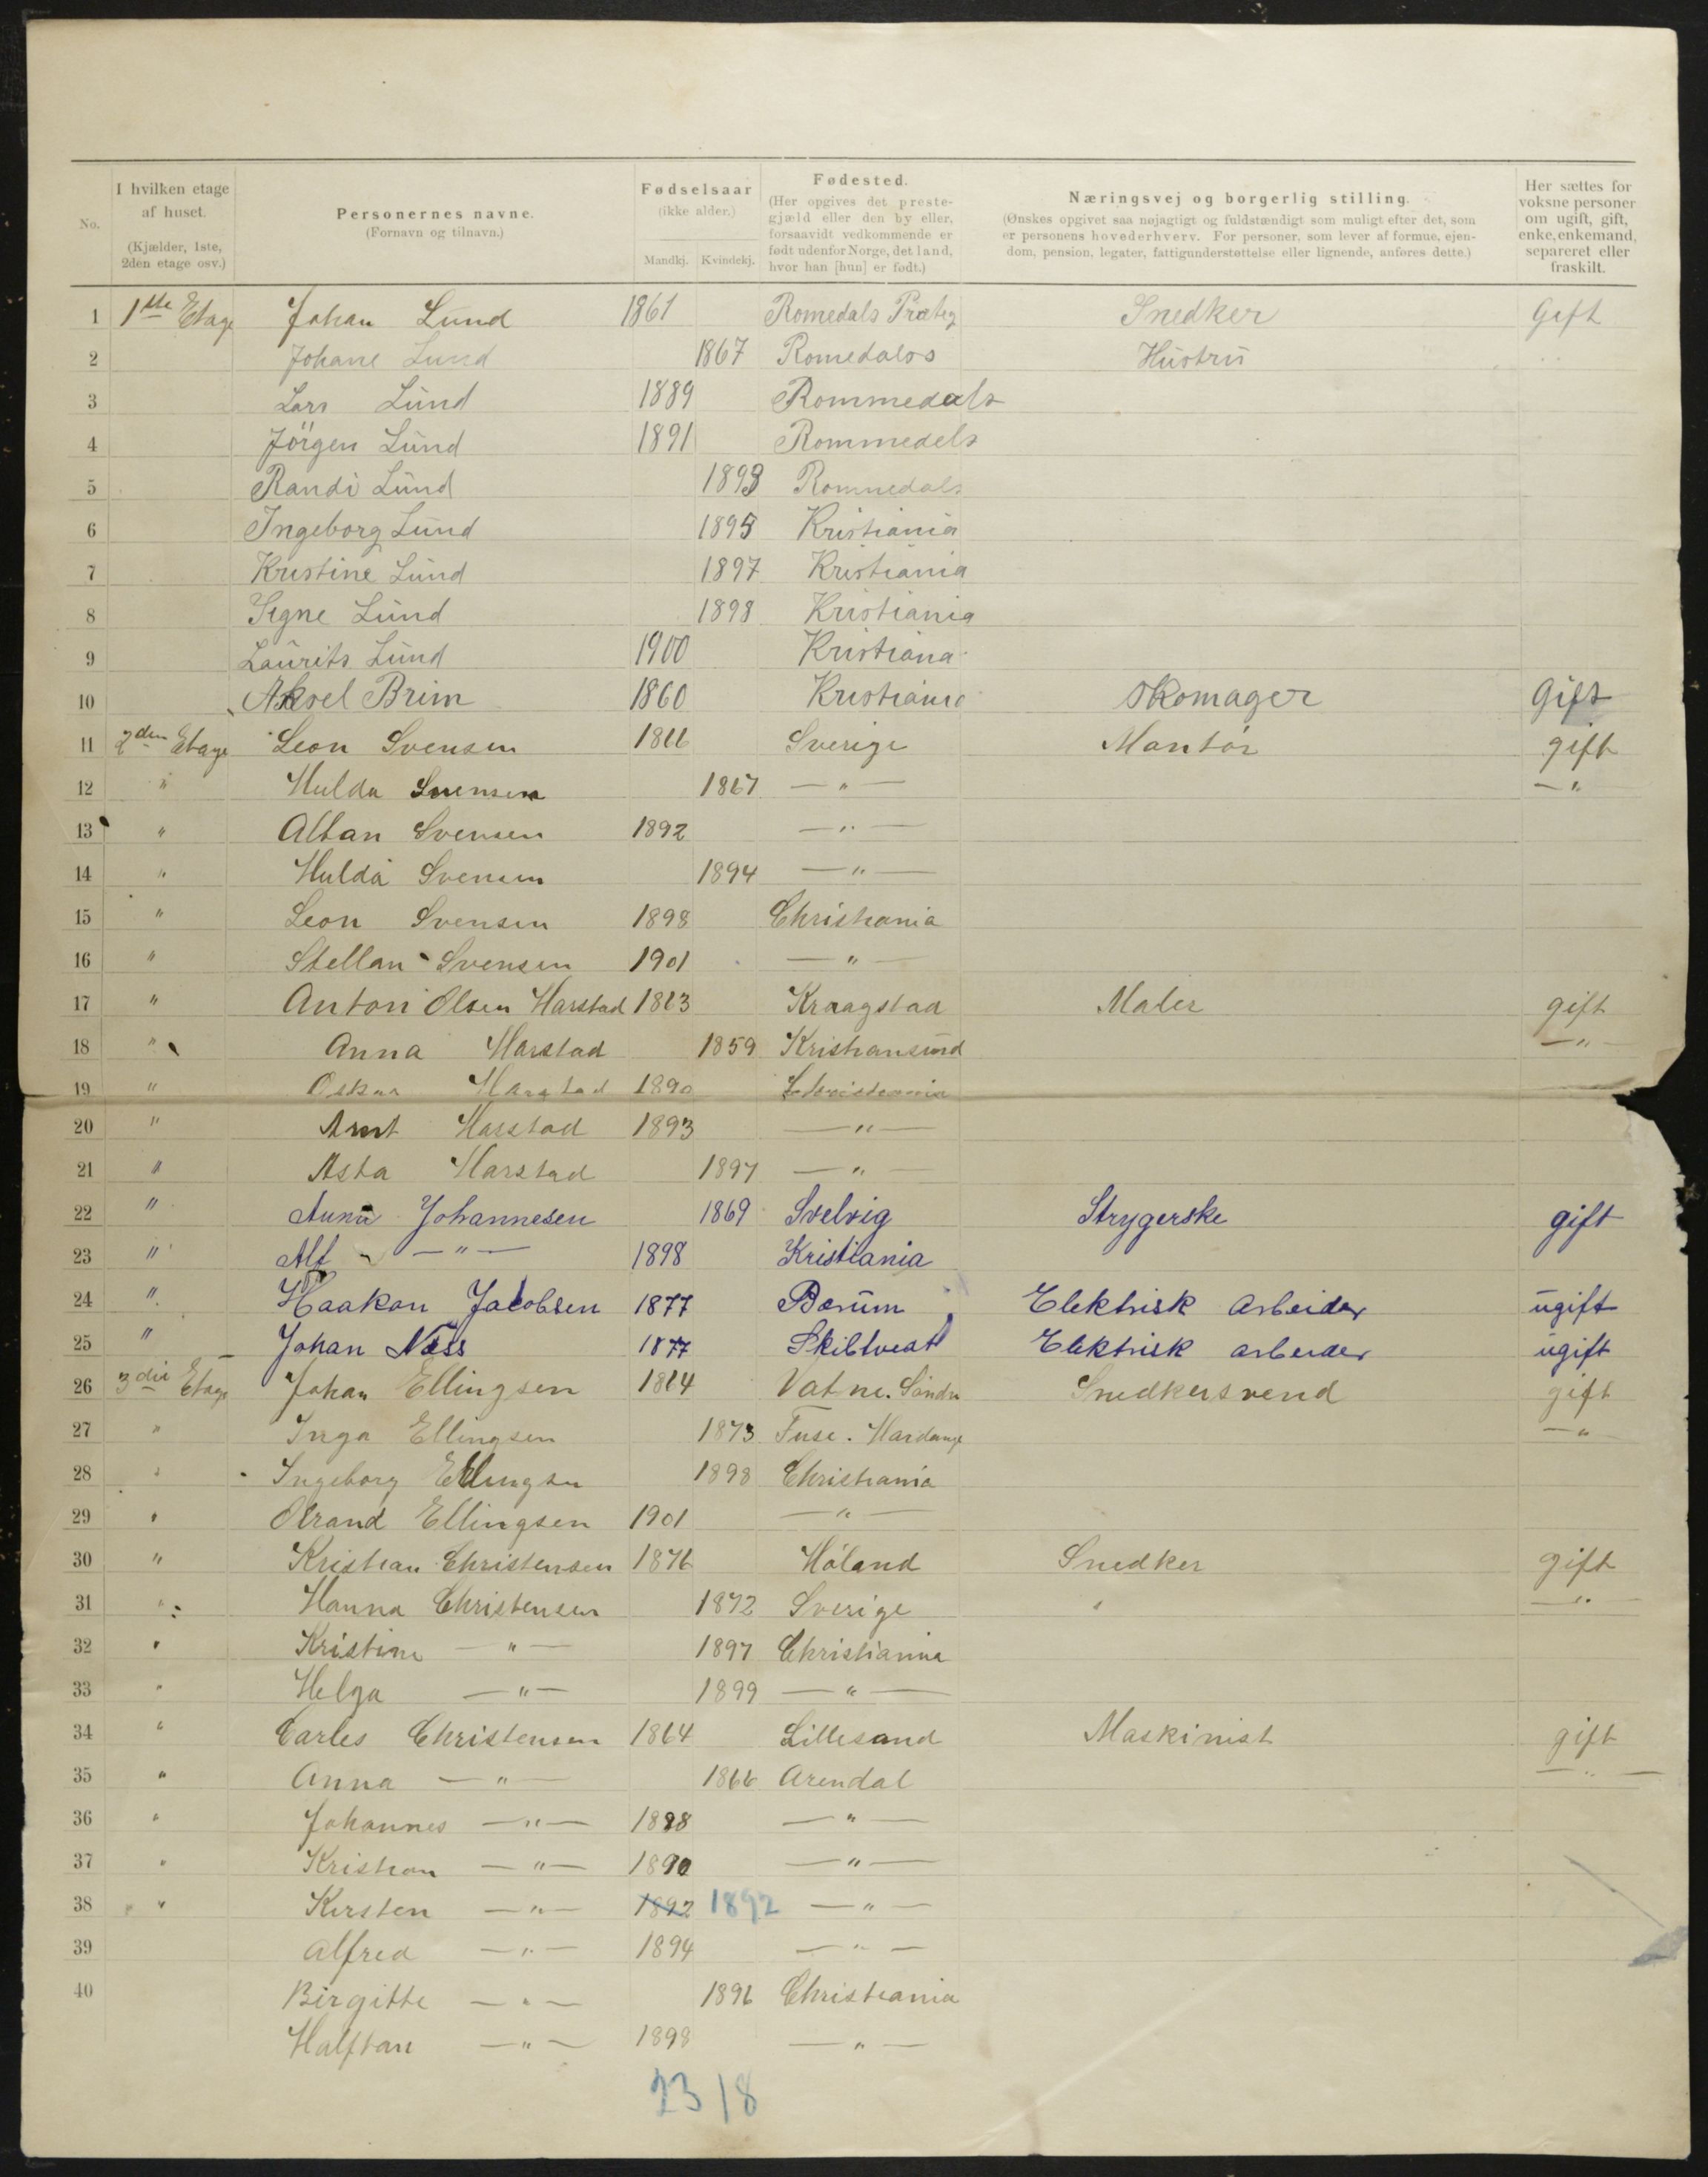 No.
I hvilken etage af huset.
(Kjælder, 1ste, 2den etage osv.)
Personernes navne.
(Fornavn og tilnavn.)
Fødselsaar
(ikke alder.)
Mandkj. Kvindekj.
Fødested.
(Her opgives det prestegjæld eller den by eller, forsaavidt vedkommende er født udenfor Norge, det land, hvor han [hun] er født.)
Næringsvej og borgerlig stilling.
(Ønskes opgivet saa nøjagtigt og fuldstændigt som muligt efter det, som er personens hovederhverv. For personer, som lever af formue, ejendom, pension, legater, fattigunderstøttelse eller lignende, anføres dette.)
Her sættes for voksne personer om ugift, gift, enke, enkemand, separeret eller fraskilt.
1 1ste Etage Johan Lund 1861 Romedals Snedker Gift
2 Johane Lund 1867 Romedals Hustru
3 Lars Lund 1889 Rommedals
4 Jörgen Lund 1891 Rommedels
5 Randi Lund 1893 Rommedals
6 Ingeborg Lund 1895 Kristiania
7 Kristine Lund 1897 Kristiania
8 Signe Lund 1898 Kristiania
9 Laurits Lund 1900 Kristiana
10 Aksel Brim 1860 Kristiania Skomager Gift
11 2den Etage Leon Svensen 1866 Sverige Montör gift
12 " Hulda Svensen 1867 — " — — "
13 " Alban Svensen 1892 — " —
14 " Hulda Svensen 1894 — " —
15 " Leon Svensen 1898 Christiania
16 " Stellan Svensen 1901 — " —
17 " Anton Olsen Harstad 1863 Kraagstad Maler gift
18 " Anna Harstad 1859 Kristiansund — " —
19 " Oskar Harstad 1890 Christiania
20 " Arnt Harstad 1893 — " —
21 " Asta Harstad 1897 — " —
22 " Anna Johannesen 1869 Svelvig Strygerske gift
23 " Alf — " — 1898 Kristiania
24 " Haakon Jacobsen 1877 Bærum Elektrisk Arbeider ugift
25 " Johan Næss 1877 Skibtveat Elektrisk arbeider ugift
26 3die Etage Johan Ellingsen 1864 Vatne. Snedkersvend gift
27 " Inga Ellingsen 1873 Fuse. Hardange — " —
28 " Ingeborg Ellingsen 1898 Christiania
29 " Ellingsen 1901 — " —
30 " Kristian Christensen 1876 Höland Snedker gift
31 " Hanna Christensen 1872 Sverige — " —
32 " Kristine — " — 1897 Christiania
33 " Helga — " — 1899 — " —
34 " Carles Christensen 1864 Lillesand Maskinist gift
35 " Anna — " — 1866 Arendal — " —
36 " Johannes — " — 1888 — " —
37 " Kristian — " — 1890 — " —
38 " Kirsten — " — 1892 1892 — " —
39 Alfred — " — 1894 — " —
40 Birgitte — " — 1896 Christiania
Halftan — " — 1898 — " —
23 18